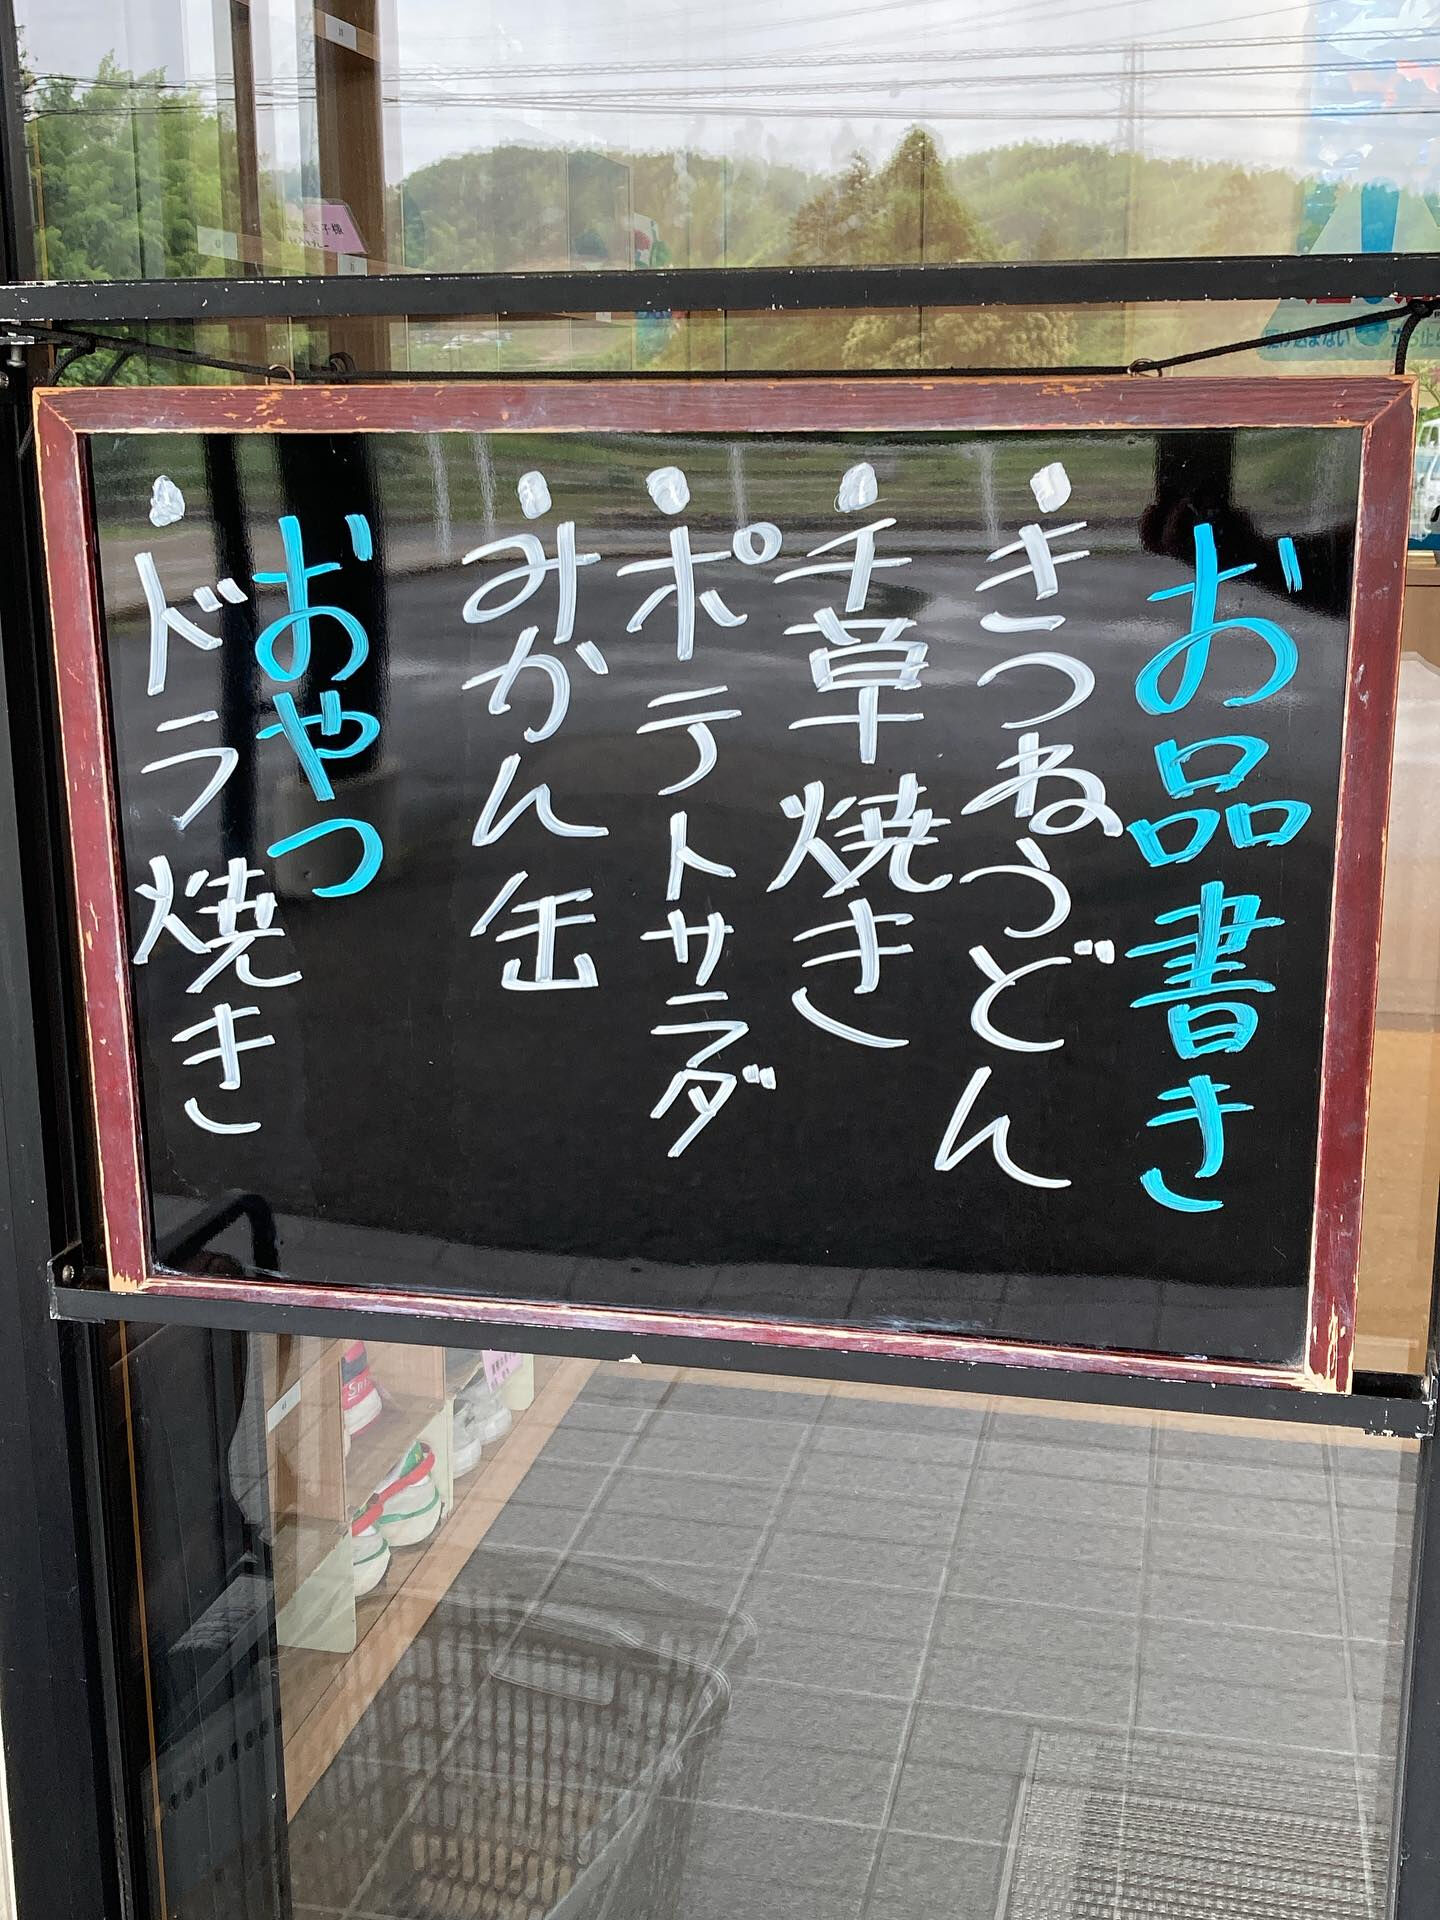 お品書き
・きつねうどん
・千草焼き
・ポテトサラダ
・みかん缶
おやつ
・ドラ焼き